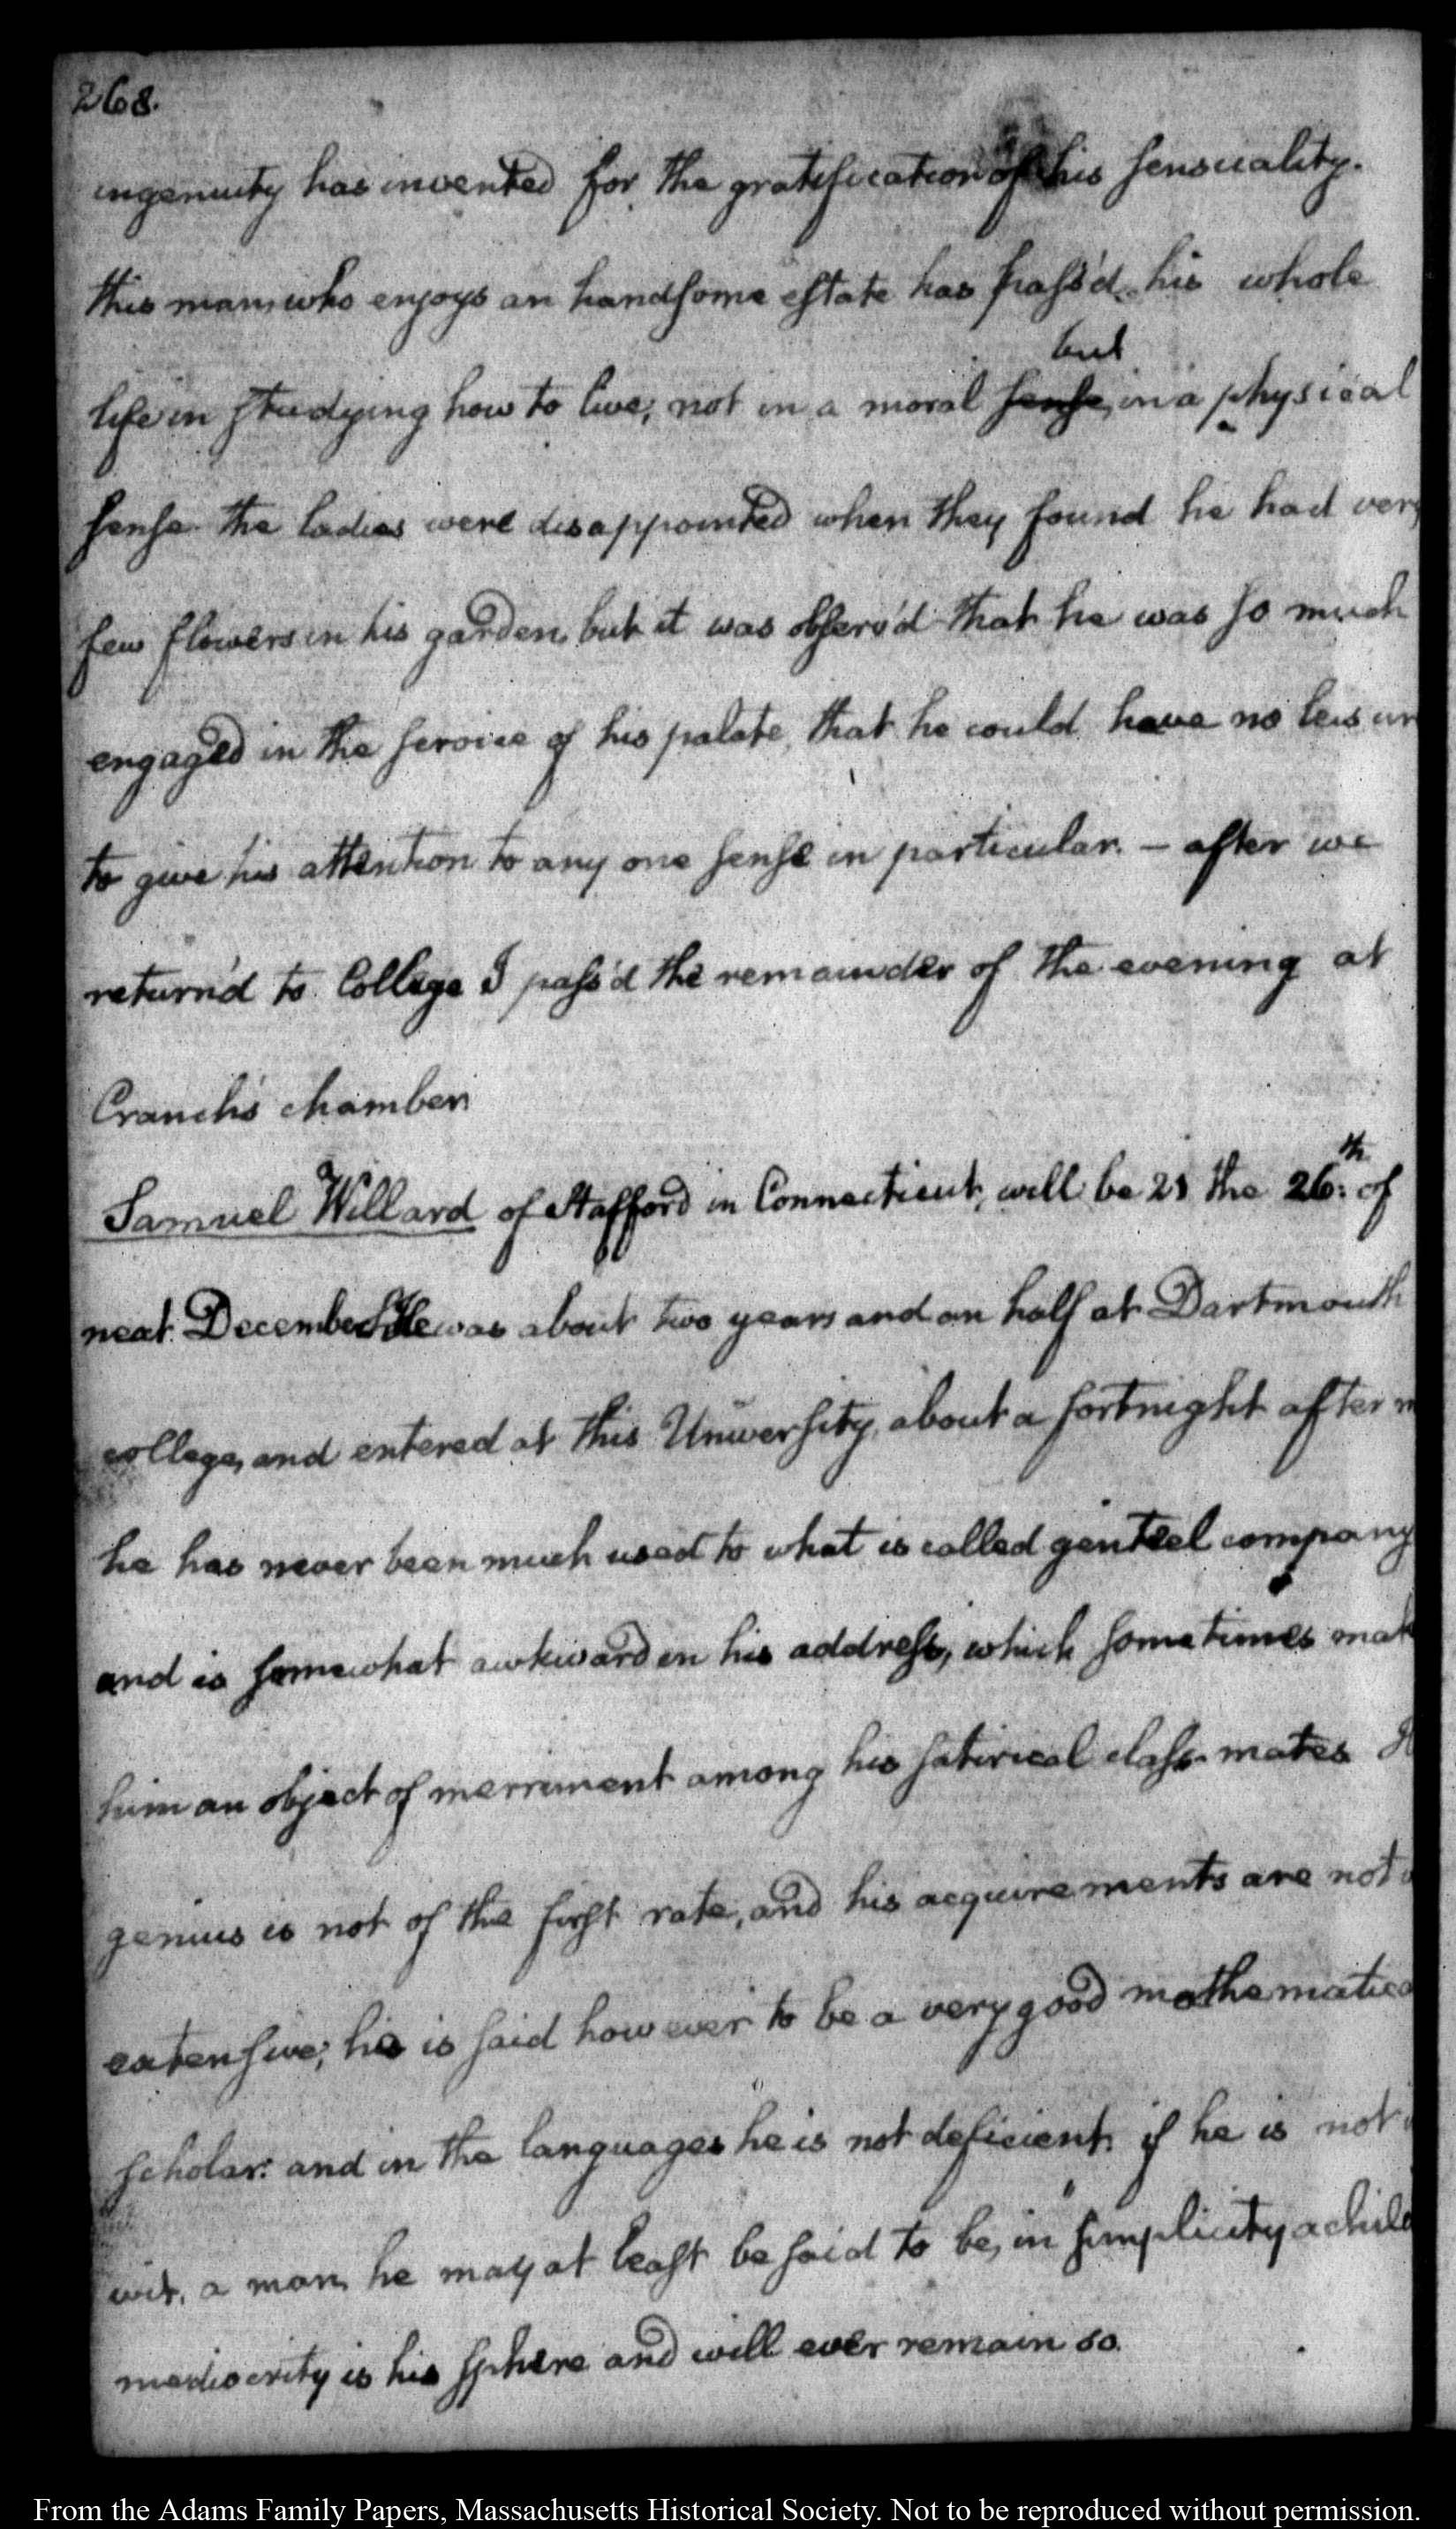 268.
ingenuity has invented for the gratification of his sensuality.
this man, who enjoys an handsome estate has pass'd his whole
but
life in studying how to live; not in a moral sense, in a physical
sense. the ladies were disappointed when they found he had very
few flowers in his garden, but it was observ'd that he was so much
engaged in the service of his palate, that he could have no leisur
to give his attention to any one sense in particular. — after we
return'd to College I pass'd the remainder of the evening at
Cranch's chamber.
Samuel Willard of Stafford in Connecticut, will be 21 the 26:th of
next December. He was about two years and an half at Dartmouth
college, and entered at this University, about a fortnight after m
he has never been much used to what is called genteel company
and is somewhat awkward in his address, which sometimes mak
him an object of merriment among his satirical class-mates. H
genius is not of the first rate, and his acquirements are not
extensive; he is said however to be a very good mathematica
scholar: and in the languages he is not deficient. if he is not
wit, a man, he may at least be said to be, in simplicity a child
mediocrity is his sphere and will ever remain so.
From the Adams Family Papers, Massachusetts Historical Society. Not to be reproduced without permission.